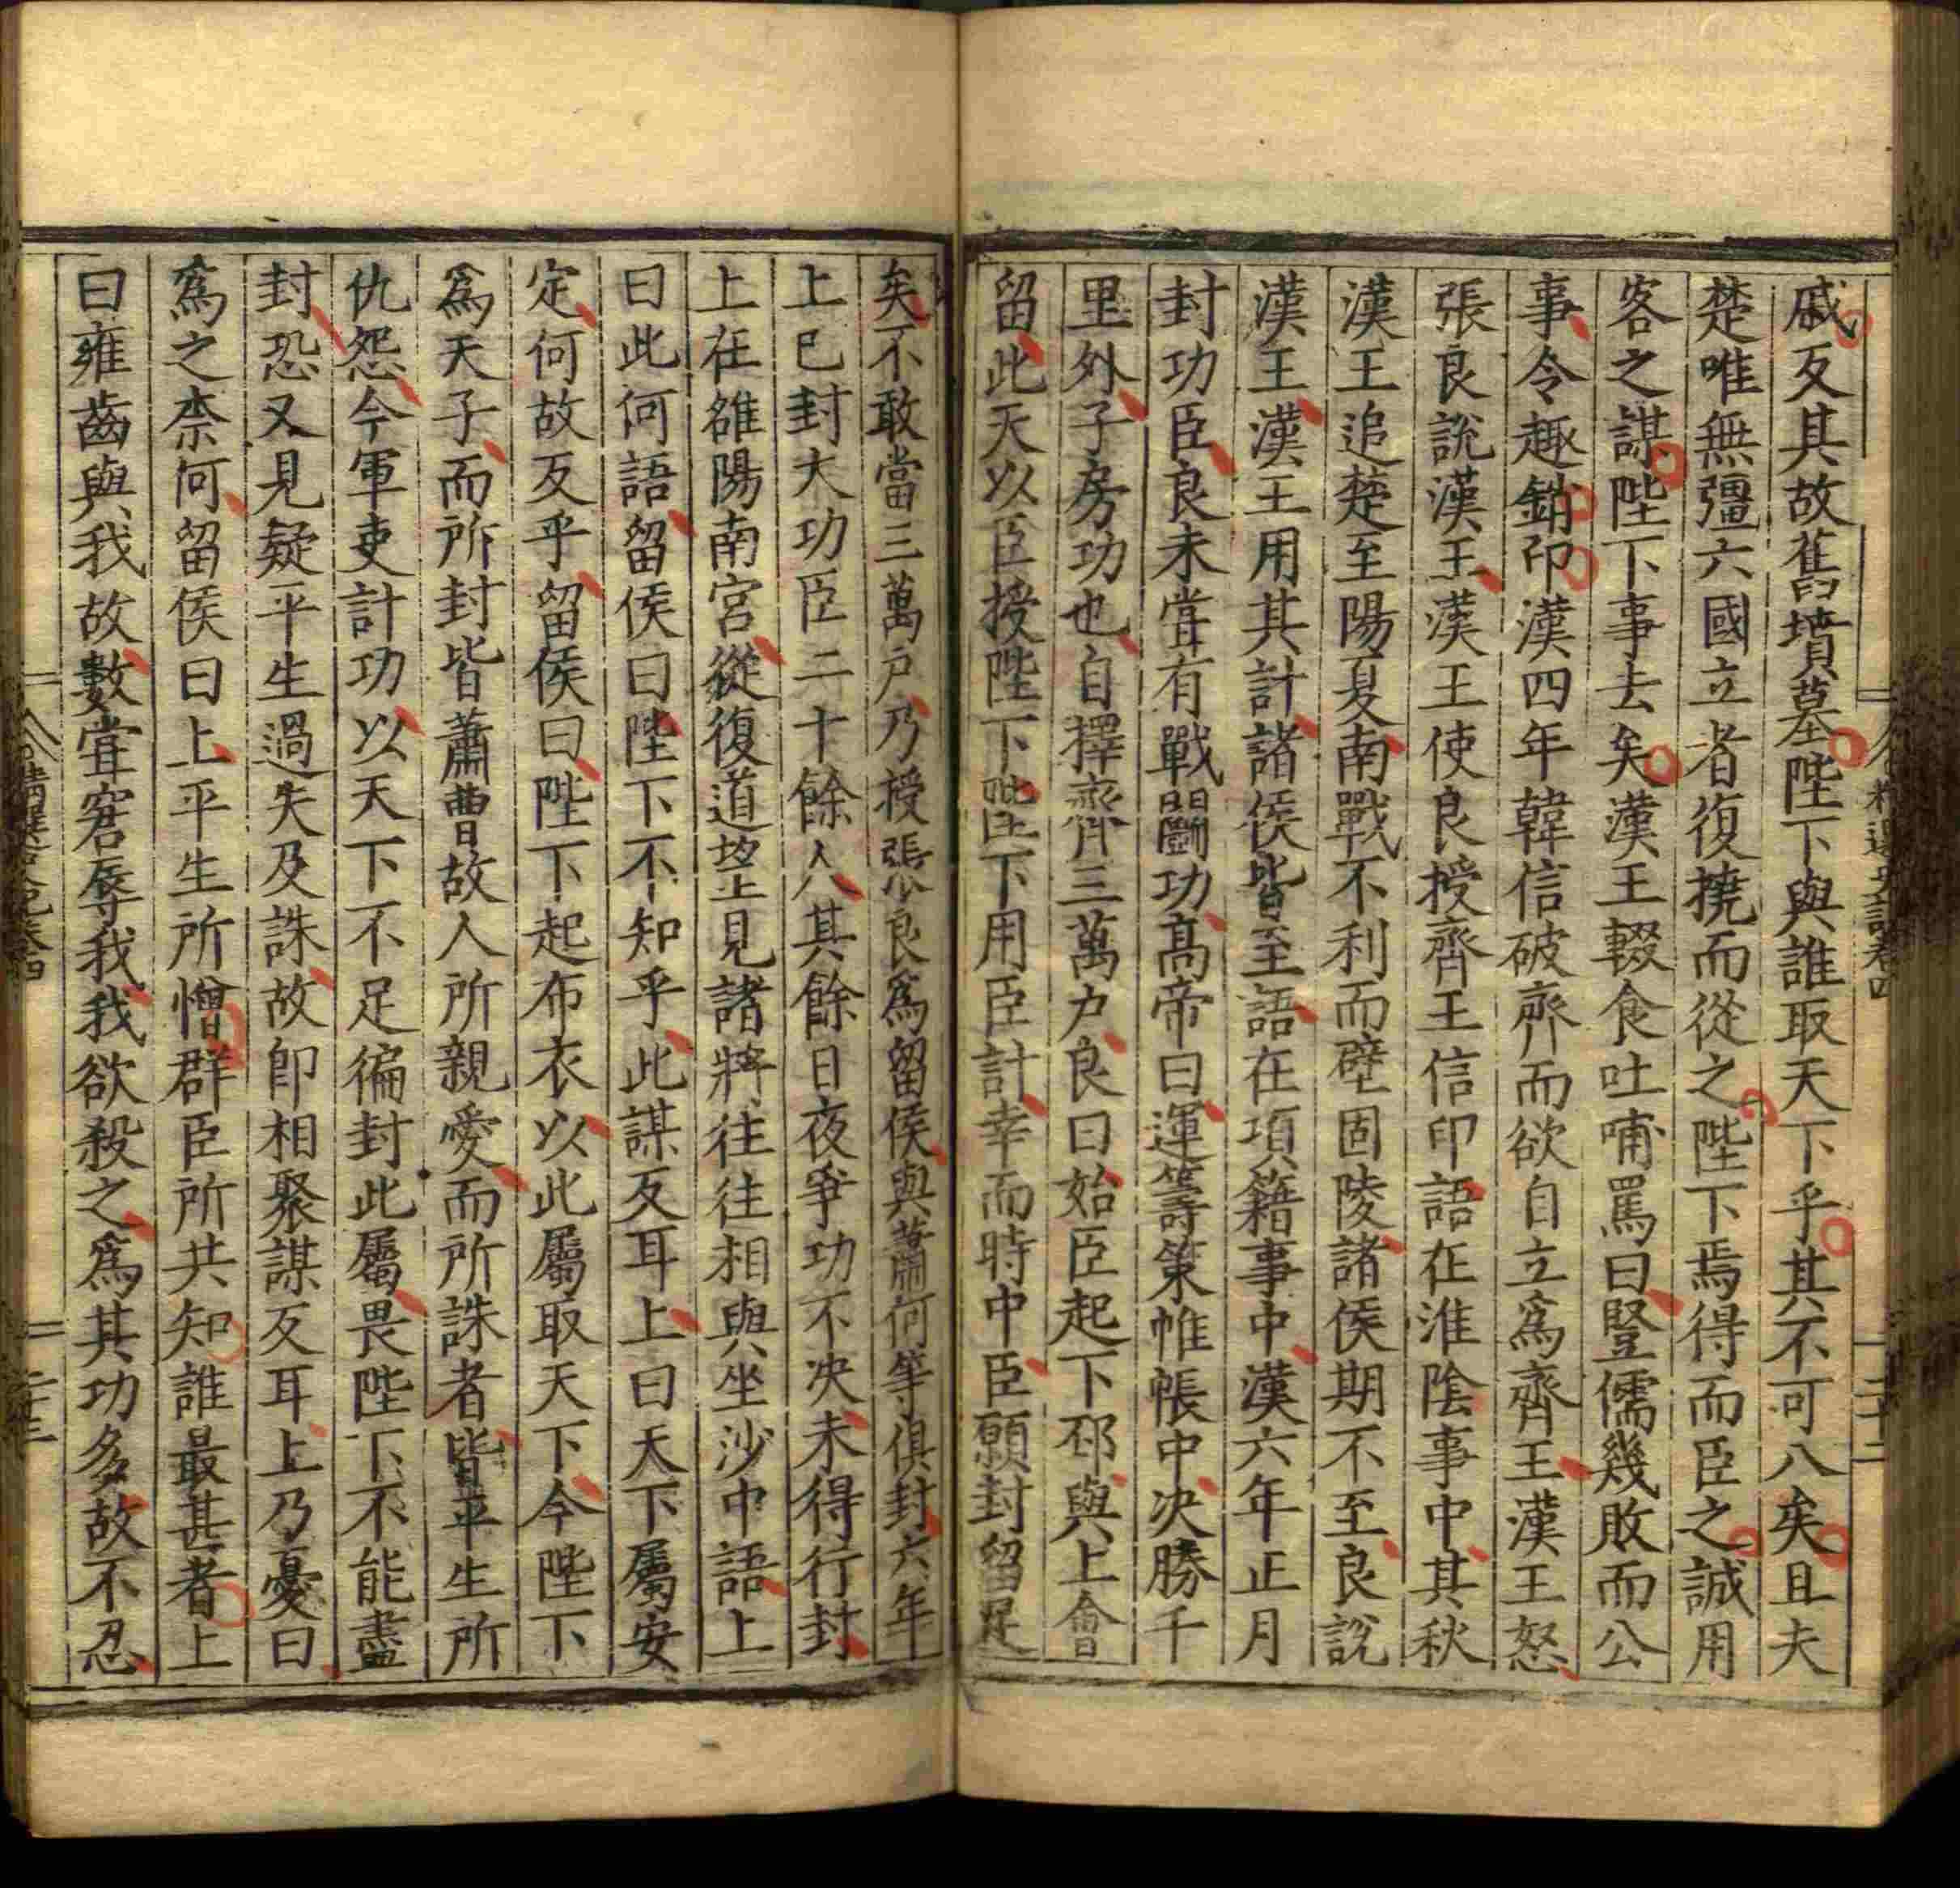 戚反其故舊墳墓陛下與誰取天下乎其不可八矣且夫
楚唯無彊六國立者復撓而從之陛下焉得而臣之誠用
客之謀陛下事去矣漢王輟食吐哺罵曰豎儒幾敗而公
事令趣銷印漢四年韓信破齊而欲自立爲齊王漢王怒
張良說漢王漢王使良授齊王信印語在淮陰事中其秋
漢王追楚至陽夏南戰不利而壁固陵諸侯期不至良說
漢王漢王用其計諸侯皆至語在項籍事中漢六年正月
封功臣良未甞有戰鬬功高帝曰運籌策帷帳中决勝千
里外子房功也自擇齊三萬户良曰始臣起下邳與上會
留此天以臣授陛下陛下用臣計幸而時中臣願封留足
矣不敢當三萬户乃授張良爲留侯與蕭何等俱封六年
上已封大功臣二十餘人其餘日夜爭功不决未得行封
上在雒陽南宮從復道望見諸將往往相與坐沙中語上
曰此何語留侯曰陛下不知乎此謀反耳上曰天下屬安
定何故反乎留侯曰陛下起布衣以此屬取天下今陛下
爲天子而所封皆蕭曹故人所親愛而所誅者皆平生所
仇怨今軍吏計功以天下不足徧封此屬畏陛下不能盡
封恐又見疑平生過失及誅故即相聚謀反耳上乃憂曰
爲之柰何留侯曰上平生所憎群臣所共知誰最甚者上
曰雍齒與我故數甞窘辱我我欲殺之爲其功多故不忍
精選史記卷四
二十二
精選史記卷四